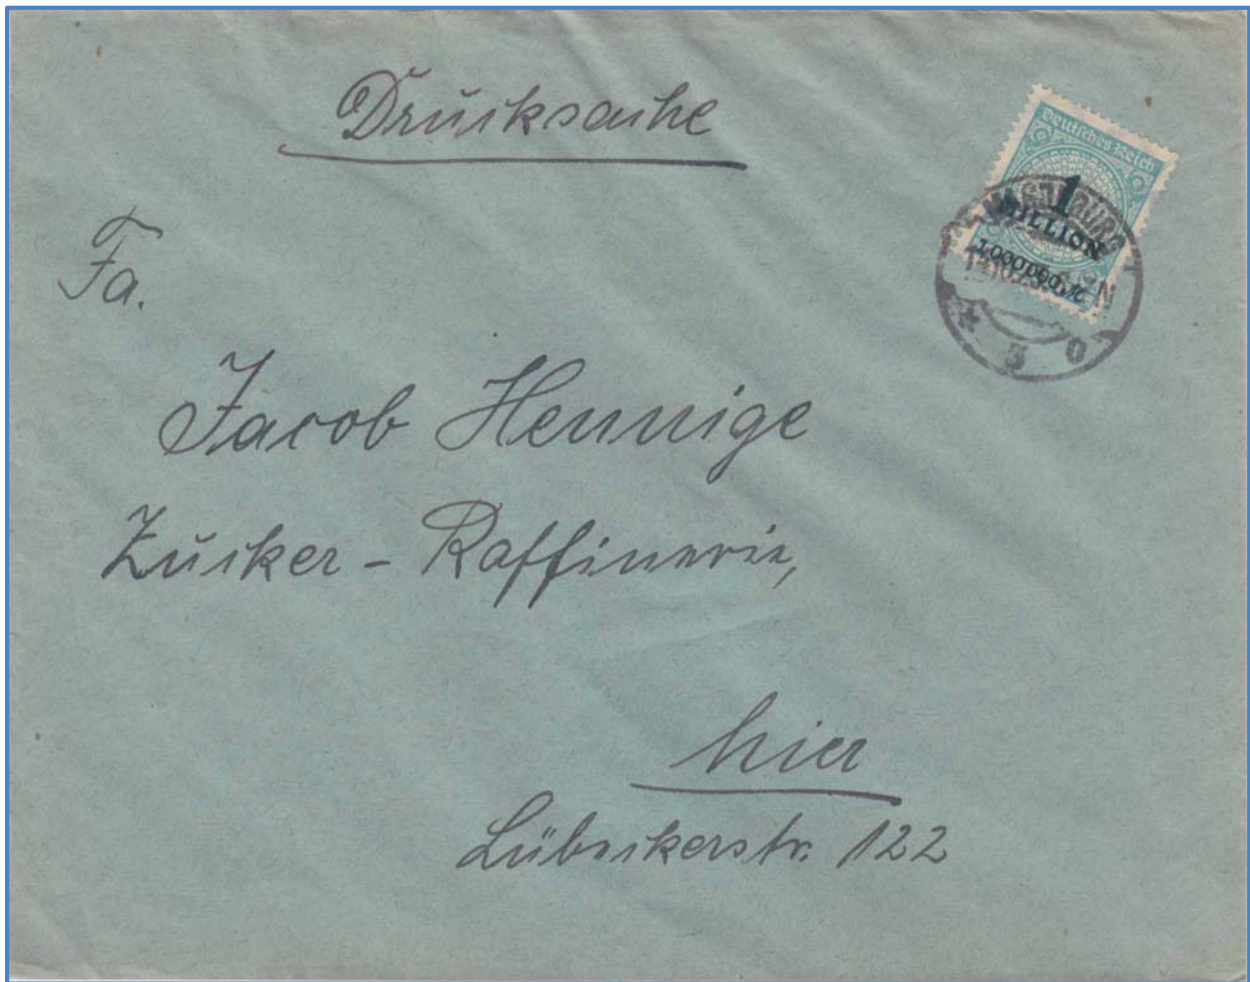 Drucksache
Deutsches Reich
1
MILLION
1000000 M
MAGDEBURG
Fa.
Jacob Hennige
Zucker-Raffinerie,
hier
Lübeckerstr. 122